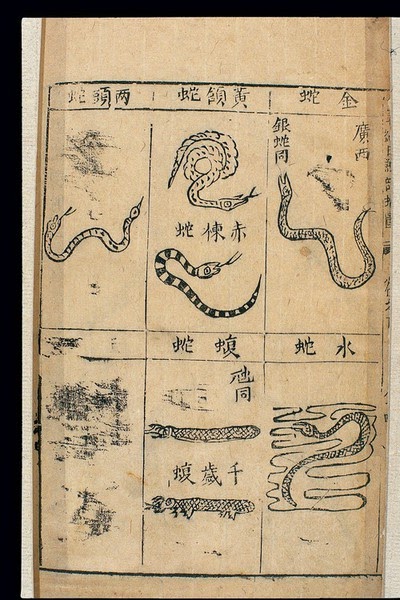 金蛇
廣西
銀蛇同
黃頷蛇
赤楝蛇
两頭蛇
水蛇
蝮蛇
虺同
千歲蝮